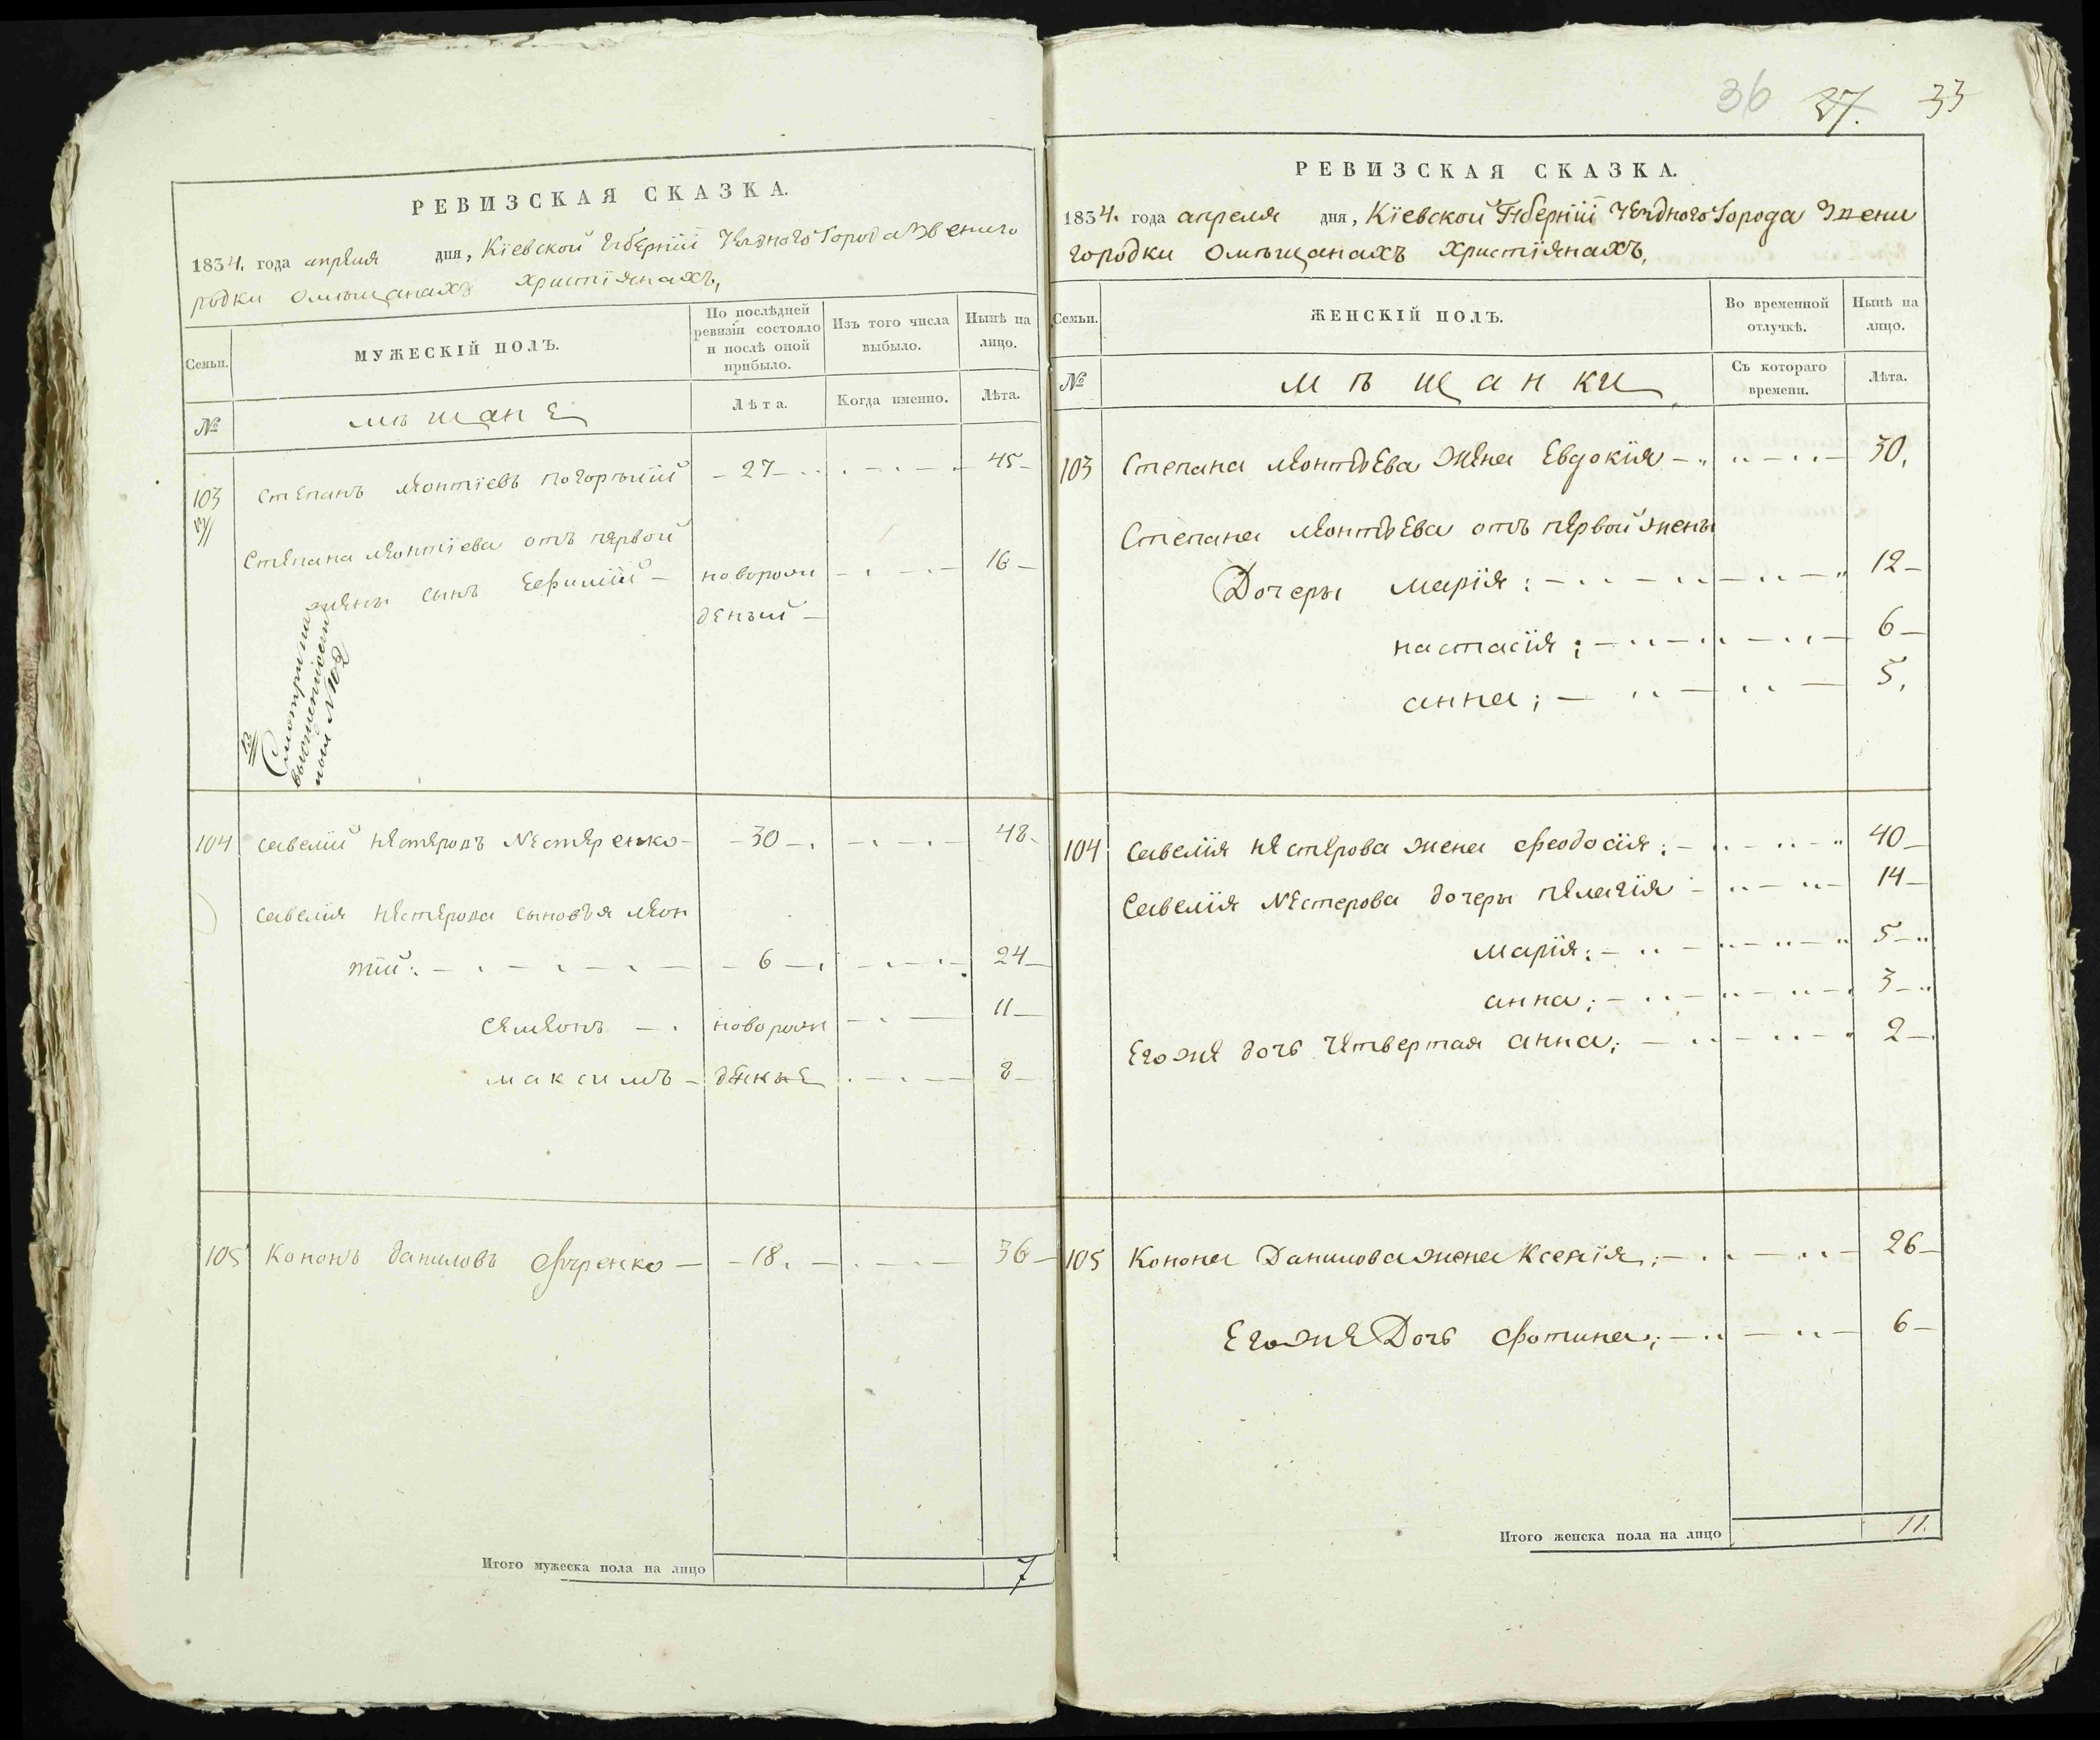 РЕВИЗСКАЯ СКАЗКА.
1834. года апреля дня, Кіевской Губерніи Уезднаго Города Звениго
родки Омѣщанахъ Христіянахъ,
Семьи.
МУЖЕСКІЙ ПОЛЪ.
По послѣдней ревизіи состояло и послѣ оной прибыло.
Изъ того числа выбыло.
Нынѣ на лицо.
№
мѣщане
Лѣта.
Когда именно.
Лѣта.
103 Степанъ Леонтіевъ Погорѣлій — 27 — 45 —
Степана Леонтіева отъ первой
жены сынъ Ефимій — новорож — 16 —
деный —
Смотри на
103
104 Савелій Нестеровъ Нестеренко — 30 — 48 —
Савелія Нестерова сыновья Леон
тій: — 6 — 24 —
Семенъ — новорож — 11 —
максимъ — денные — 8 —
105 Кононъ Даниловъ — 18. — 36 —
Итого мужеска пола на лицо 7
36 37. 33
РЕВИЗСКАЯ СКАЗКА.
1834. года апреля дня, Кіевской Губерніи Уезднаго Города Звени
городки Омѣщанахъ Христіянахъ,
Семьи.
ЖЕНСКІЙ ПОЛЪ.
Во временной отлучкѣ.
Нынѣ на лицо.
№
мѣщанки
Съ котораго времени.
Лѣта.
103 Степана Леонтьева жена Евдокія — 30,
Степана Леонтьева отъ первой жены
Дочеры марія: — 12 —
настасія; — 6 —
анна; — 5,
104 Савелія Нестерова жена Феодосія; — 40 —
Савелія Нестерова дочеры Пелагія — 14 —
марія; — 5 —
анна; — 3 —
Егоже дочь четвертая анна; — 2 —
105 Конона Данилова жена Ксенія; — 26 —
Егоже Дочь Фотина; — 6 —
Итого женска пола на лицо 11.